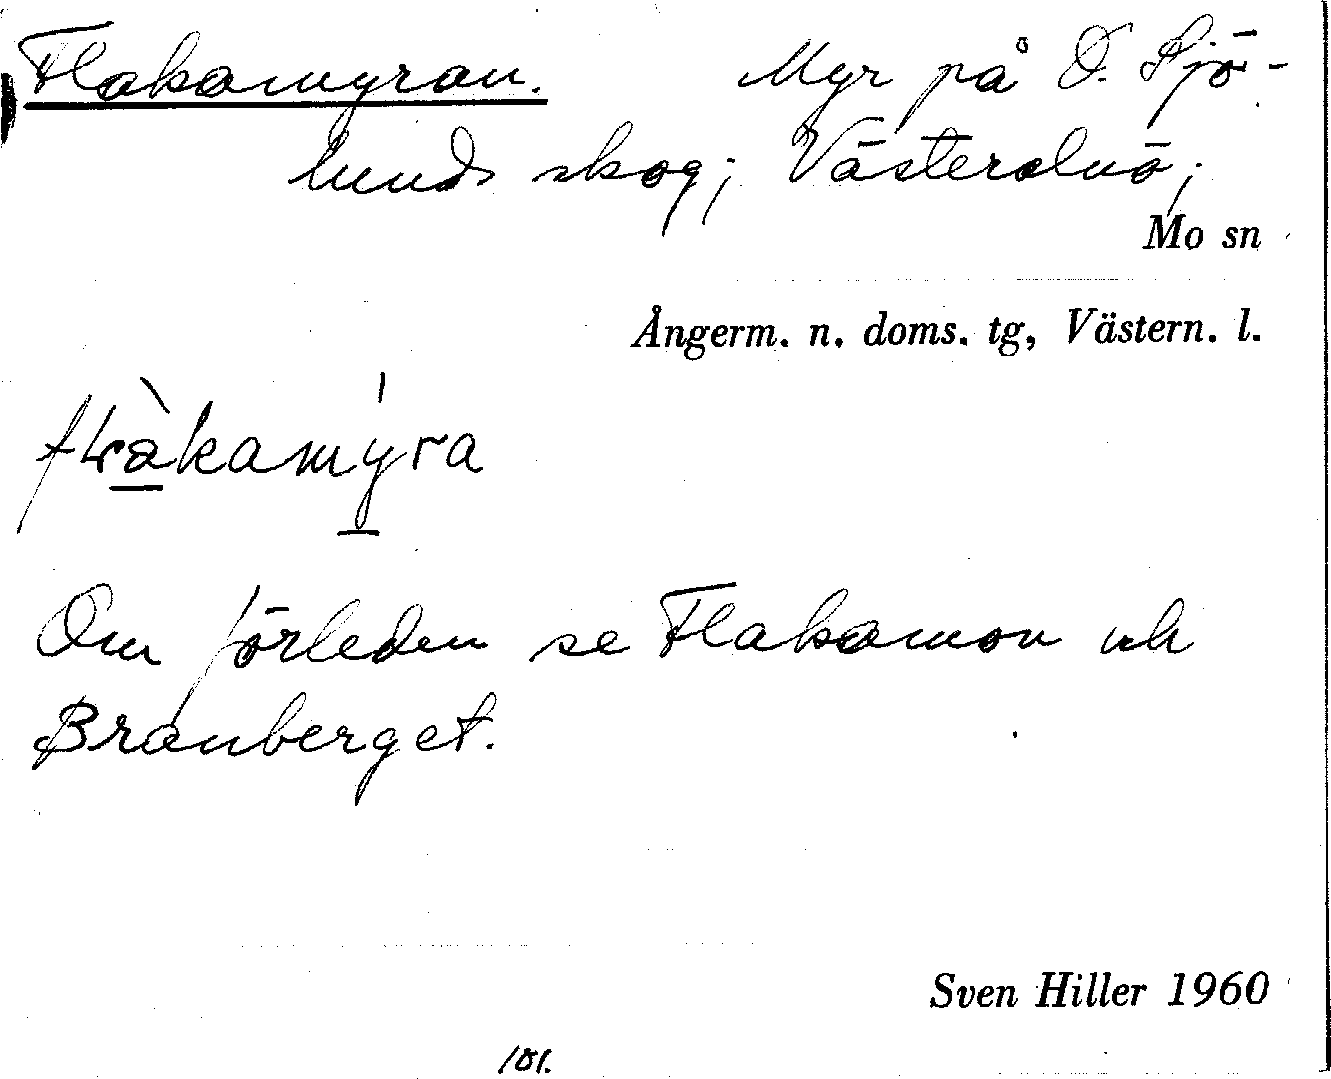 Flakamyran. Myr på O. Sjö-
lunds skog; Västerolnö;
Mo sn
Ångerm. n. doms. tg, Västern. l.
Om förleden se Flakamon och
Branberget.
Sven Hiller 1960
101.